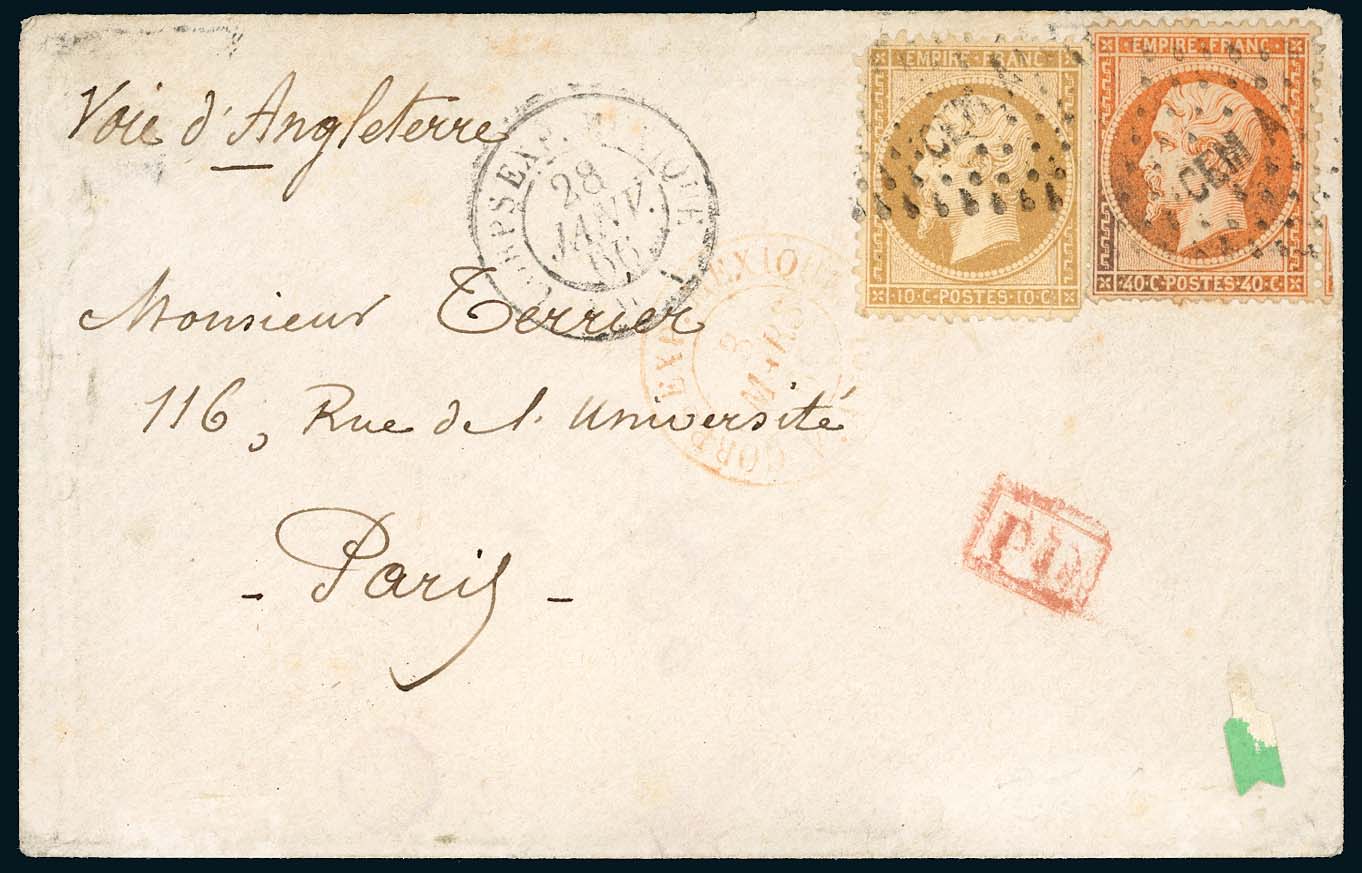 Voie d'Angleterre
CORPS EXP. MEXIQUE
28
JANV.
66
EMPIRE·FRANC
CEM
10·C·POSTES·10·C
EMPIRE·FRANC
CEM
40·C·POSTES·40·C
CORR. EXP. MEXIQUE
8
MARS
Monsieur Terrier
116, Rue de l'Université
P.D.
- Paris -